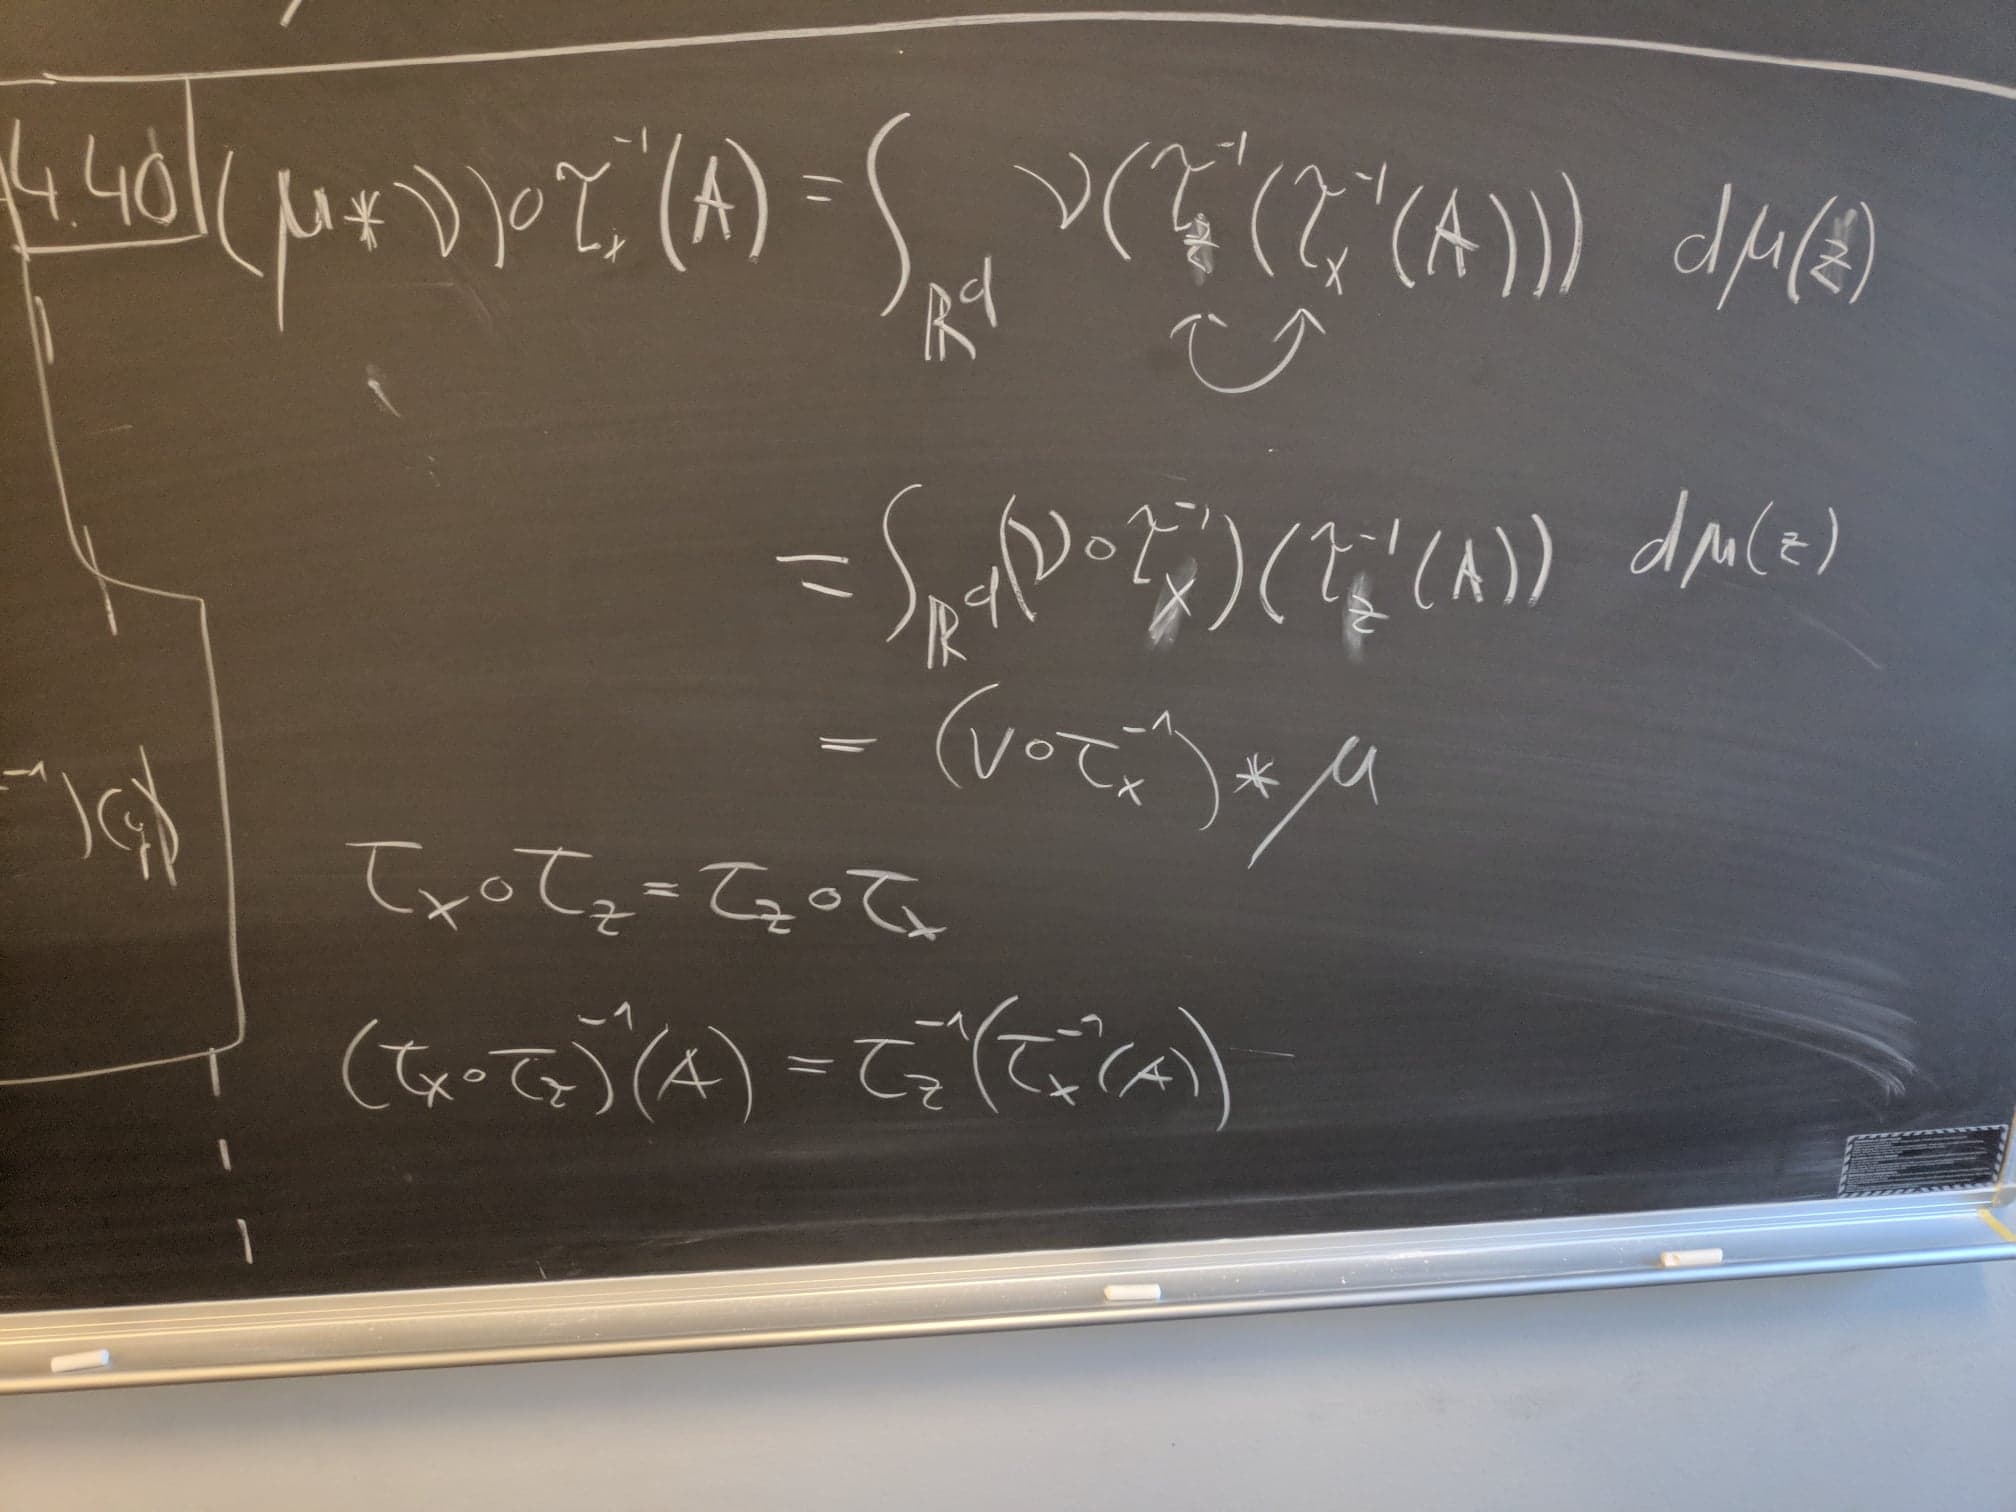 4.40 (μ * ν) ∘ τₓ⁻¹(A) = ∫_{ℝᵈ} ν(τ_z⁻¹(τₓ⁻¹(A))) dμ(z)
= ∫_{ℝᵈ} (ν ∘ τₓ⁻¹)(τ_z⁻¹(A)) dμ(z)
= (ν ∘ τₓ⁻¹) * μ
τₓ ∘ τ_z = τ_z ∘ τₓ
(τₓ ∘ τ_z)⁻¹(A) = τ_z⁻¹(τₓ⁻¹(A))